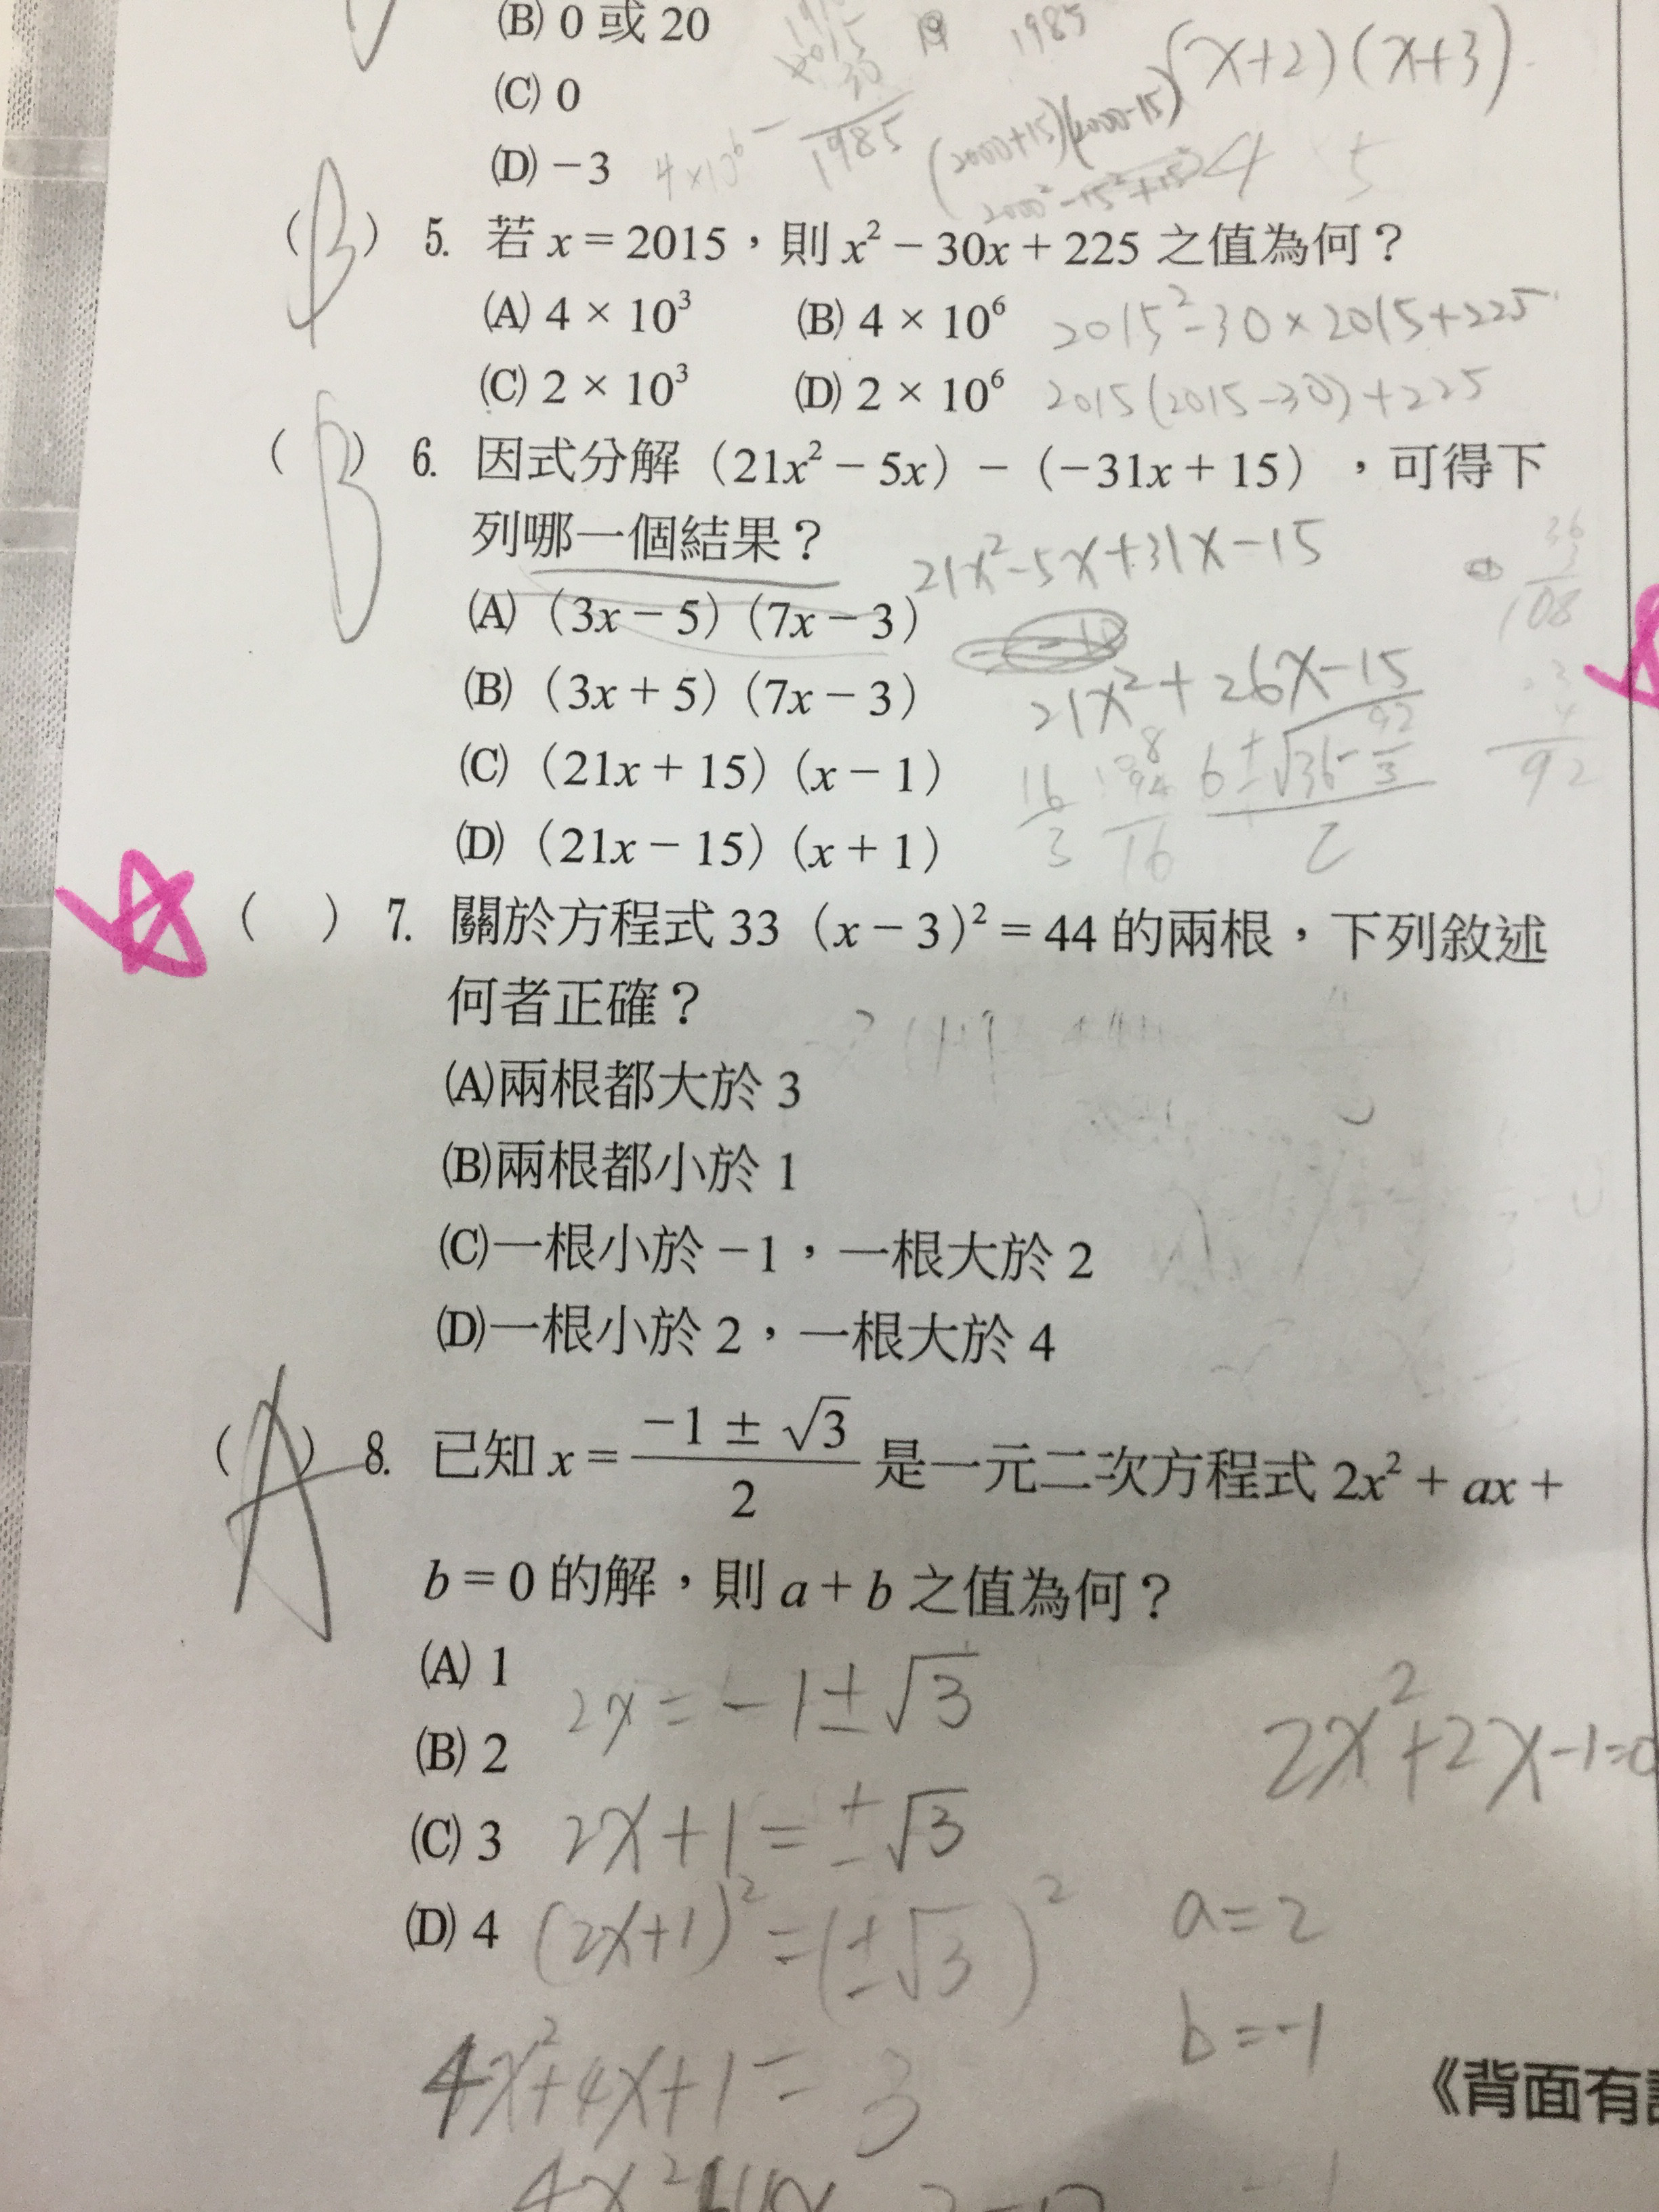 (B) 0 或 20
(C) 0
(D) −3
1985
(x+2)(x+3)
(2000+15)(2000-15)
1985
4×10⁶
4 5
(B) 5. 若 x = 2015，則 x² − 30x + 225 之值為何？
(A) 4 × 10³ (B) 4 × 10⁶
2015²-30×2015+225
(C) 2 × 10³ (D) 2 × 10⁶
2015(2015-30)+225
(B) 6. 因式分解（21x² − 5x）−（−31x + 15），可得下
列哪一個結果？
21x²-5x+31x-15
(A)（3x − 5）（7x − 3）
108
(B)（3x + 5）（7x − 3）
21x²+26x-15
(C)（21x + 15）（x − 1）
92
(D)（21x − 15）（x + 1）
( ) 7. 關於方程式 33（x − 3）² = 44 的兩根，下列敘述
何者正確？
(A)兩根都大於 3
(B)兩根都小於 1
(C)一根小於 −1，一根大於 2
(D)一根小於 2，一根大於 4
(A) 8. 已知 x = (−1 ± √3)/2 是一元二次方程式 2x² + ax +
b = 0 的解，則 a + b 之值為何？
(A) 1
2x = -1±√3
(B) 2
2x²+2x-1=0
(C) 3
2x+1=±√3
(D) 4
(2x+1)²=(±√3)²
a=2
b=-1
4x²+4x+1=3
《背面有